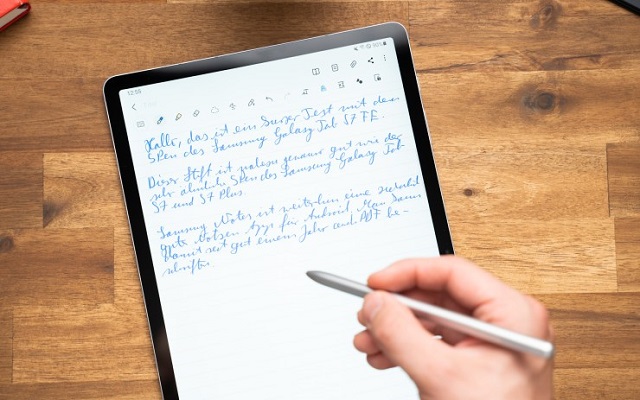 12:55
Hallo, das ist ein kurzer Test mit dem
SPen des Samsung Galaxy Tab S7 FE.
Dieser Stift ist genauso gut wie der
sehr ähnliche SPen des Samsung Galaxy Tab
S7 und S7 Plus.
Samsung Notes ist weiterhin eine
gute Notizen App für Android. Man kann
damit seit gut einem Jahr auch PDF be-
schriften.